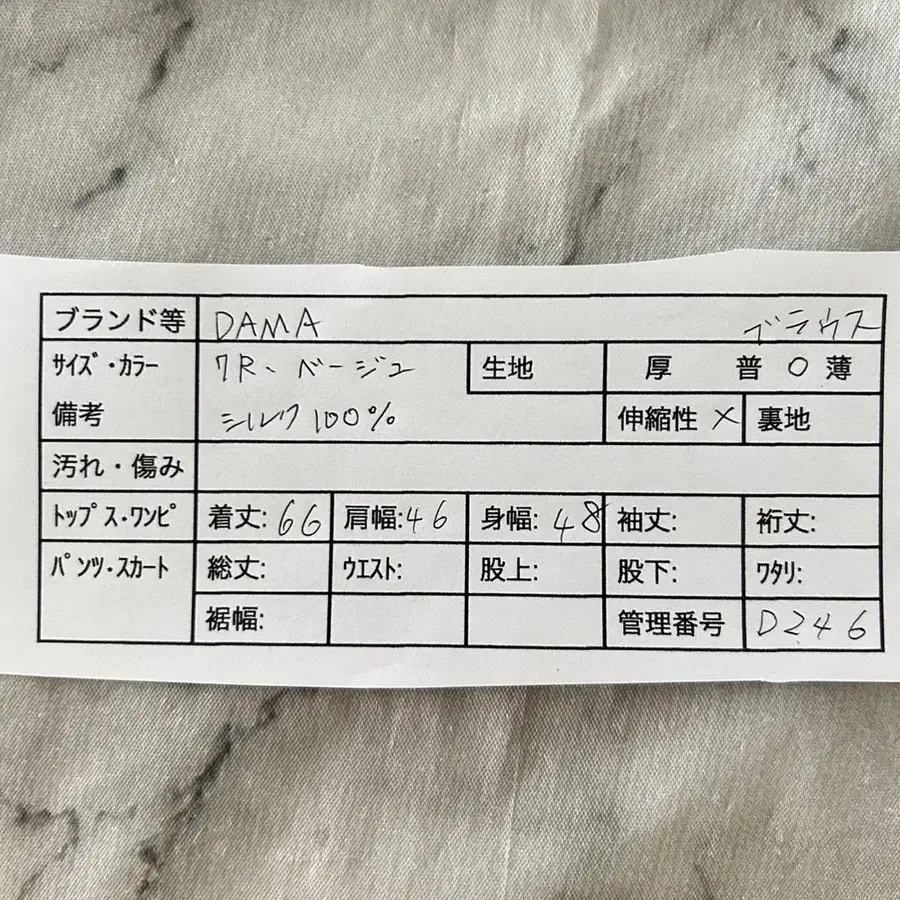 ブランド等 DAMA ブラウス
ｻｲｽﾞ・ｶﾗｰ 7R、ベージュ 生地 厚 普 〇 薄
備考 シルク100% 伸縮性 × 裏地
汚れ・傷み
ﾄｯﾌﾟｽ・ﾜﾝﾋﾟ 着丈: 66 肩幅: 46 身幅: 48 袖丈: 裄丈:
ﾊﾟﾝﾂ・ｽｶｰﾄ 総丈: ｳｴｽﾄ: 股上: 股下: ﾜﾀﾘ:
裾幅: 管理番号 D246